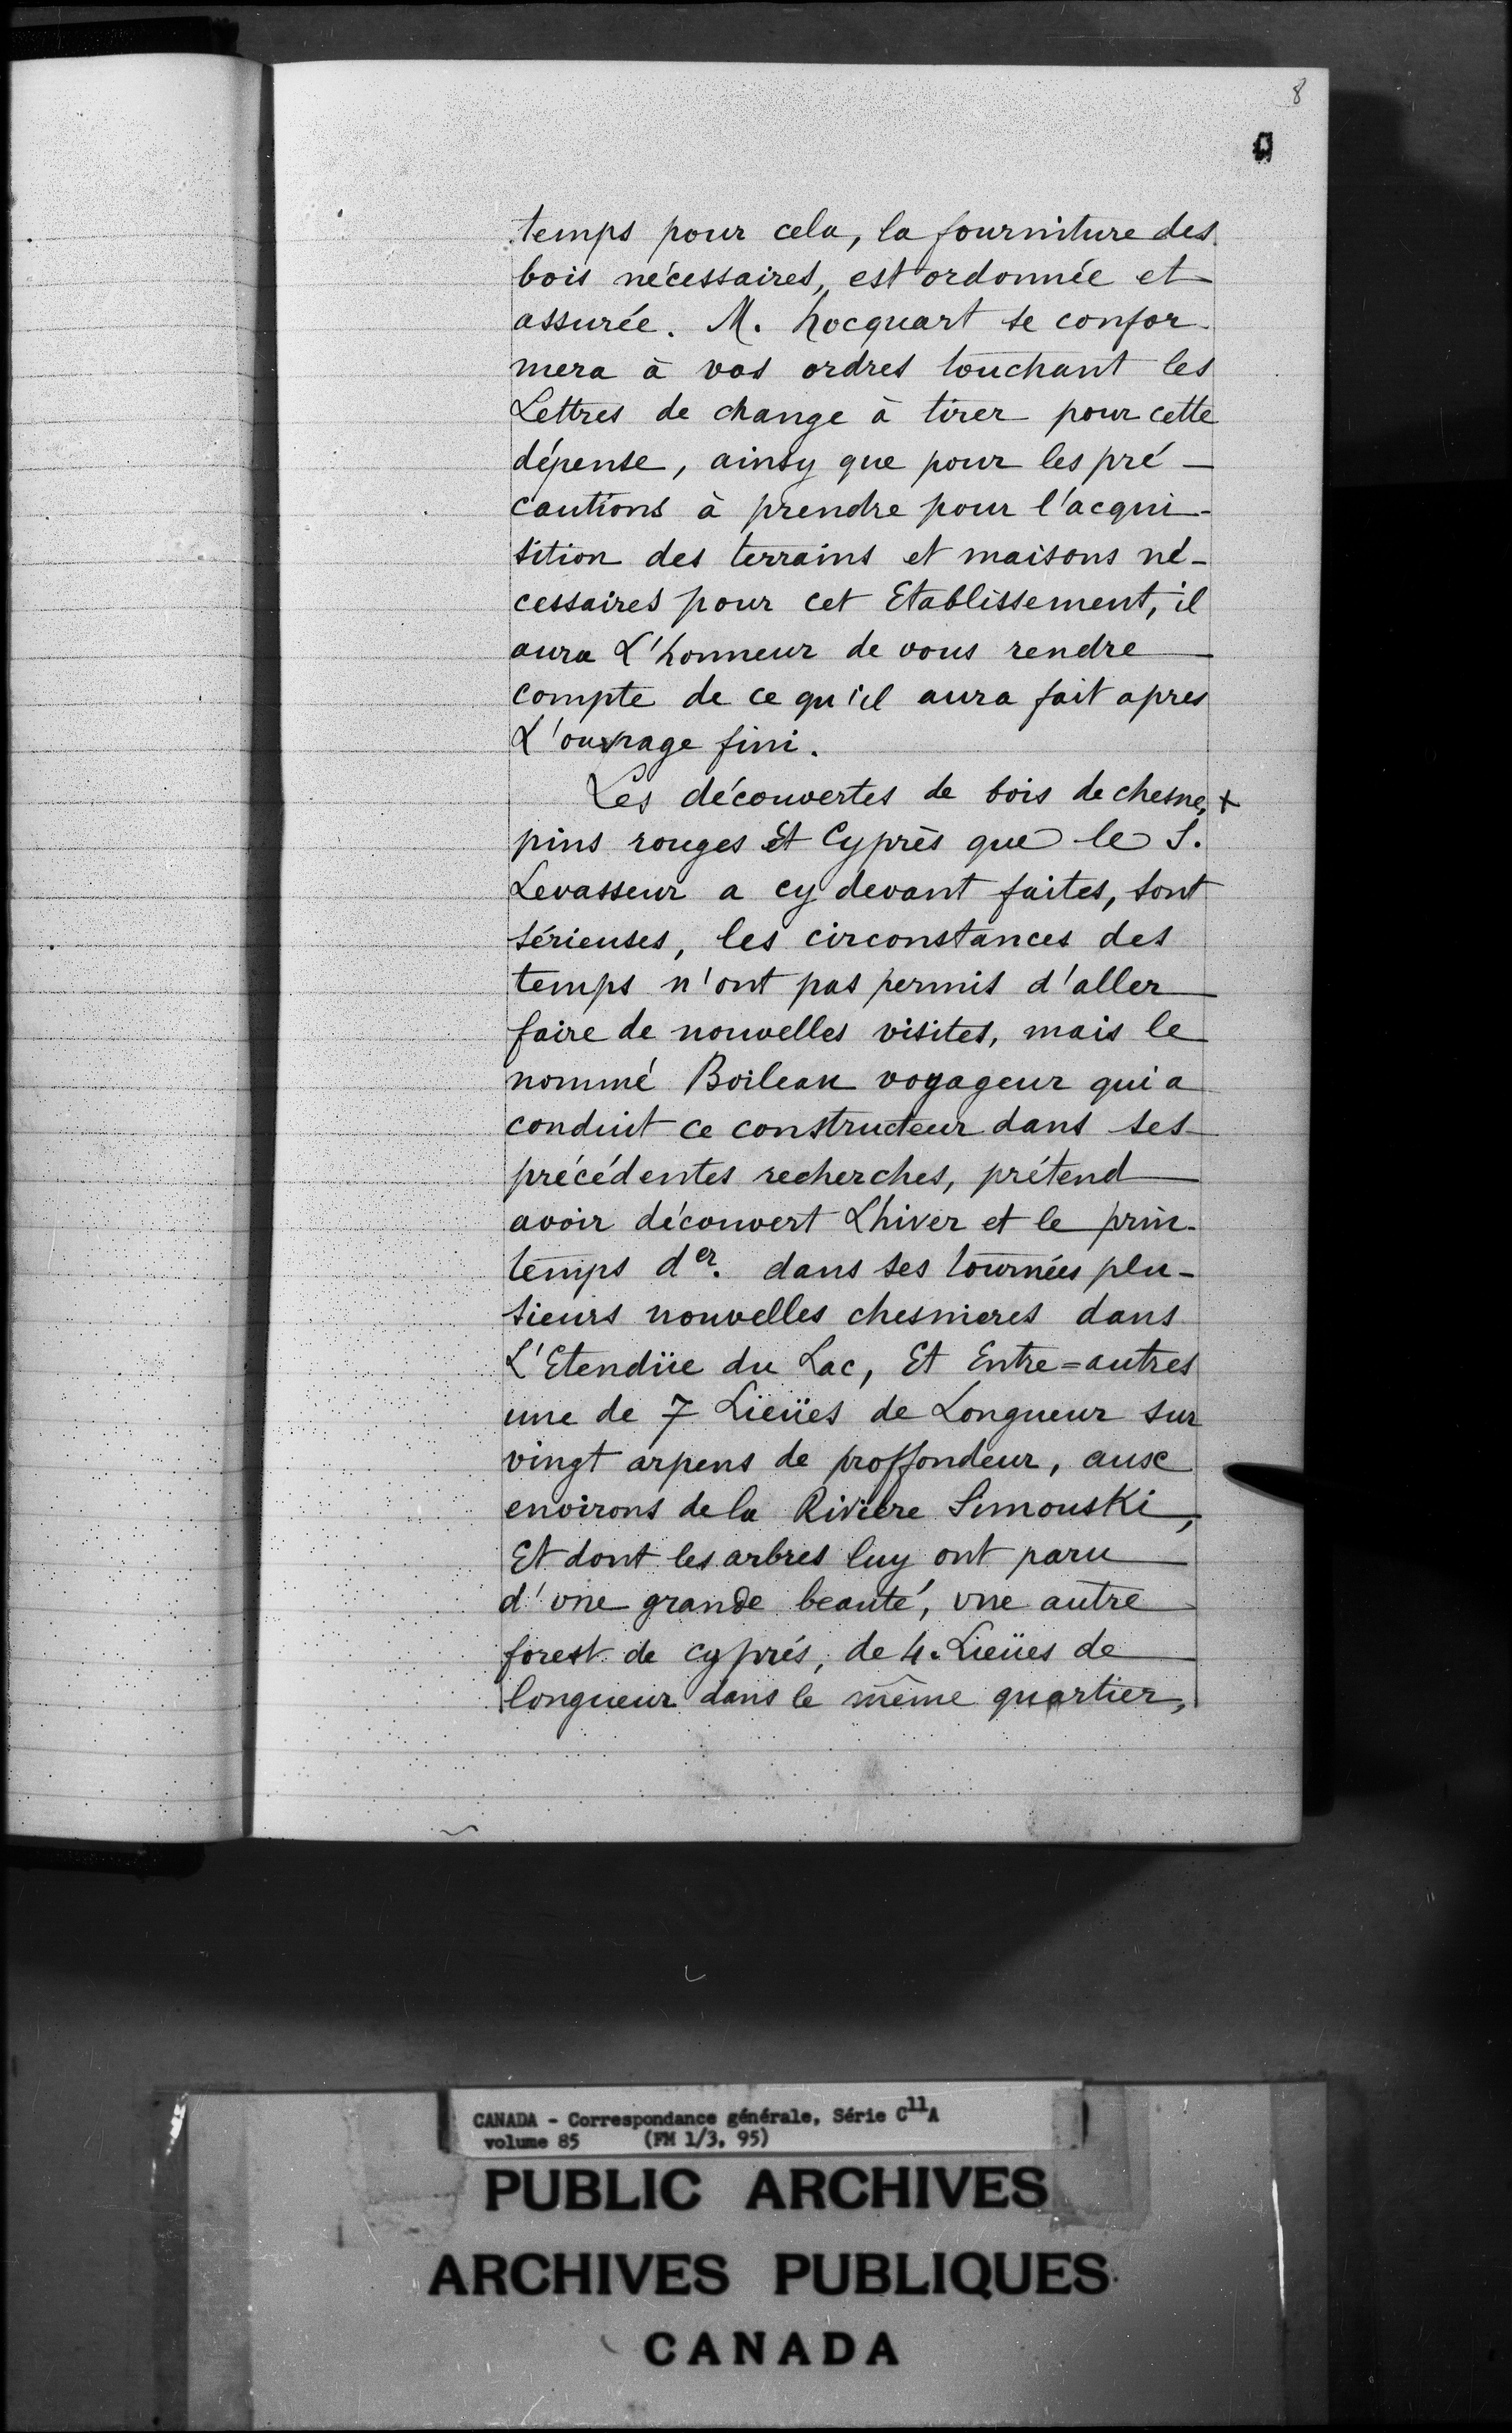 8
temps pour cela, la fourniture des
bois nécessaires, est ordonnée et
assurée. M. hocquart se confor-
mera à vos ordres touchant les
Lettres de change à tirer pour cette
dépense, ainsy que pour les pré-
cautions à prendre pour l'acqui-
sition des terrains et maisons né-
cessaires pour cet Etablissement, il
aura L'honneur de vous rendre
compte de ce qu'il aura fait apres
L'ouvrage fini.
Les découvertes de bois de chesne, +
pins rouges Et Cyprès que le S.
Levasseur a cy devant faites, sont
sérieuses, les circonstances des
temps n'ont pas permis d'aller
faire de nouvelles visites, mais le
nommé Boileau voyageur qui a
conduit ce constructeur dans ses
précédentes recherches, prétend
avoir découvert L'hiver et le prin-
temps der. dans ses tournées plu-
sieurs nouvelles chesnieres dans
L'Etendüe du Lac, Et Entre=autres
une de 7 Lieües de Longueur sur
vingt arpens de proffondeur, aux
environs de la Rivière Simouski,
Et dont les arbres luy ont paru
d'vne grande beauté, vne autre
forest de cyprés, de 4. Lieües de
longueur dans le même quartier,
CANADA - Correspondance générale, Série C11A
volume 85 (FM 1/3, 95)
PUBLIC ARCHIVES
ARCHIVES PUBLIQUES
CANADA